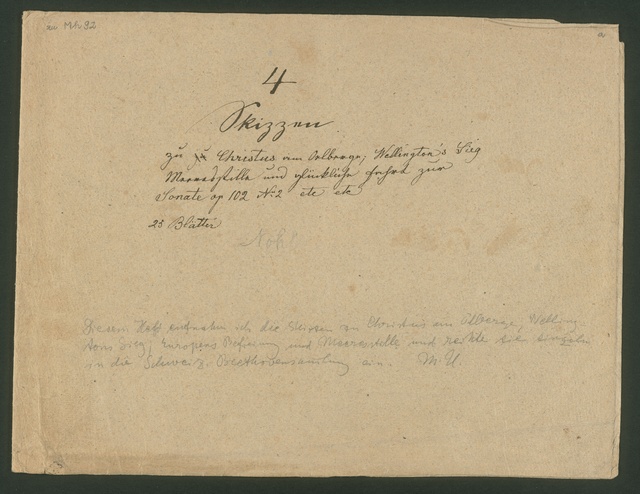 zu Mh 92
a
4
Skizzen
zu zu Christus am Oelberge; Wellington's Sieg
Meeresstille und glückliche Fahrt zur
Sonate op 102 No 2 etc etc
25 Blätter
Nohl
Diesem Heft entnahm ich die Skizzen zu Christus am Ölberge, Welling-
tons Sieg, Europens Befreiung und Meeresstille und reihte sie einzeln
in die Schweiz. Beethovensammlung ein. M. U.